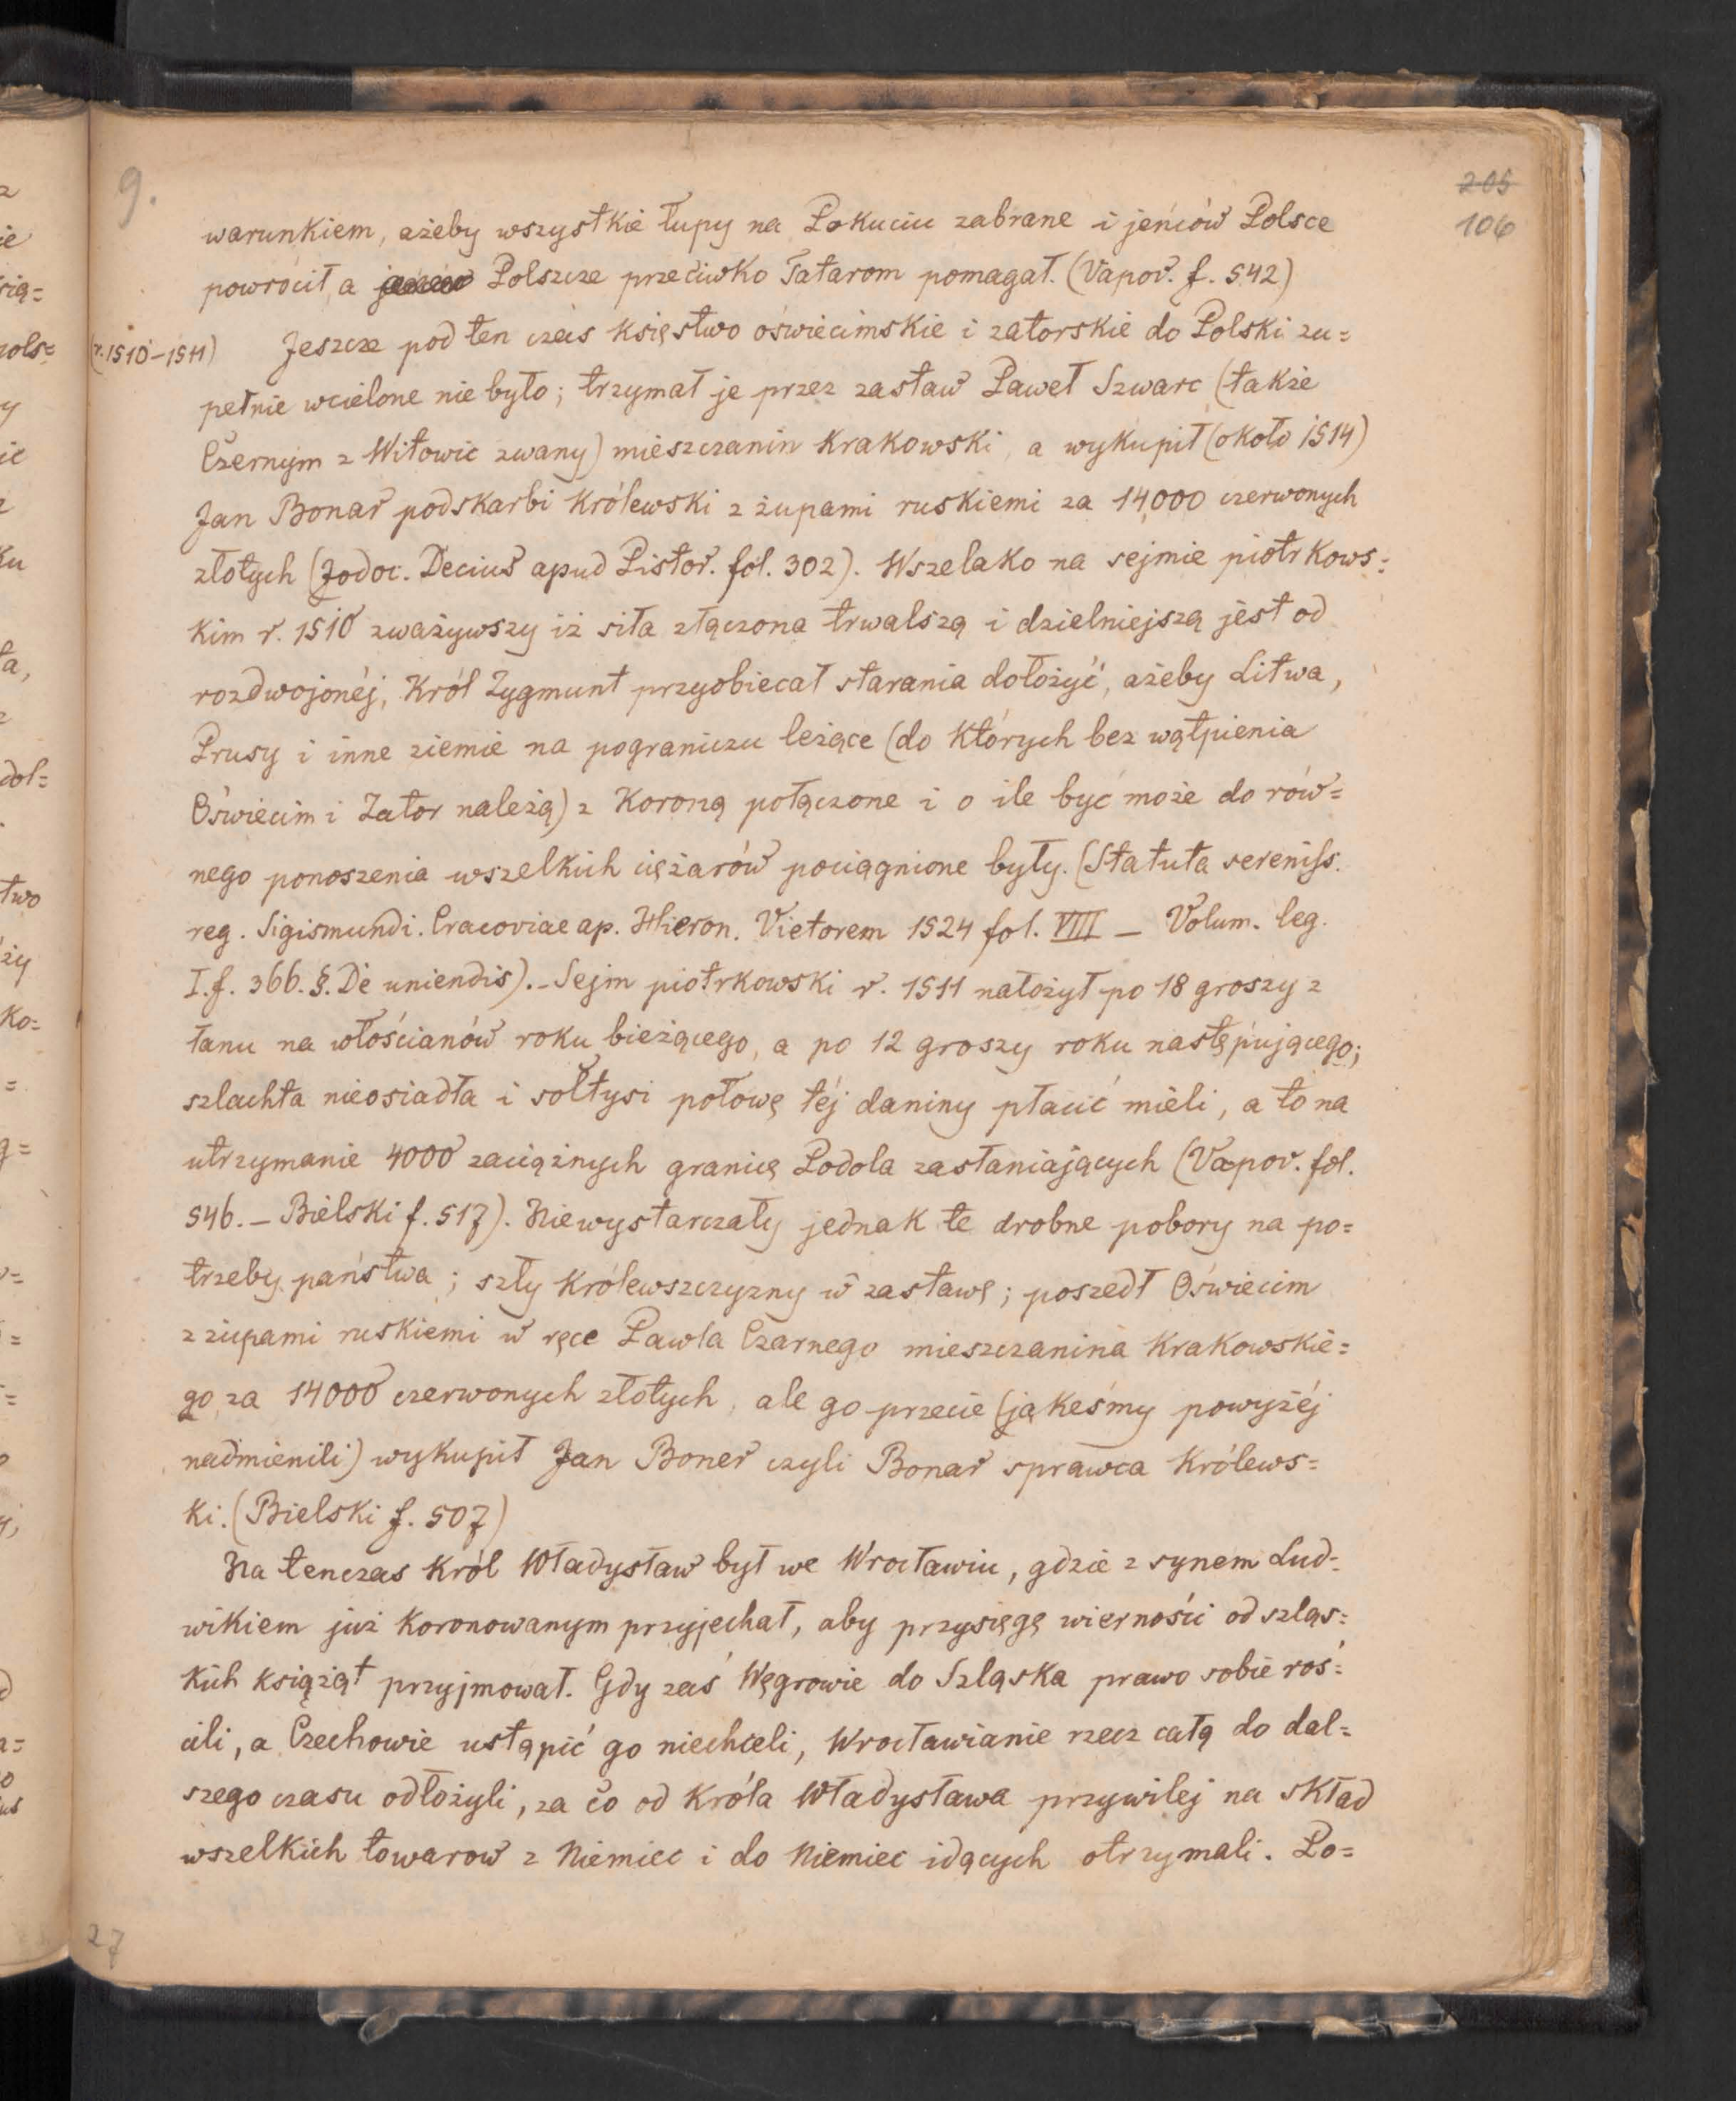 9.
205
106
warunkiem, ażeby wszystkie łupy na Pokuciu zabrane i jeńców Polsce
powrócił, a Polszcze przeciwko Tatarom pomagał. (Vapov. f. 542)
(r. 1510-1511) Jeszcze pod ten czas księstwo oświecimskie i zatorskie do Polski zu=
pełnie wcielone nie było; trzymał je przez zastaw Paweł Szwarc (także
Czernym z Witowic zwany) mieszczanin Krakowski, a wykupił (około 1514)
Jan Bonar podskarbi Królewski z żupami ruskiemi za 14,000 czerwonych
złotych (Jodoc. Decius apud Pistor. fol. 302). Wszelako na sejmie piotrkows=
kim r. 1510 zważywszy iż siła złączona trwalszą i dzielniejszą jest od
rozdwojonéj, Król Zygmunt przyobiecał starania dołożyć, ażeby Litwa,
Prusy i inne ziemie na pograniczu leżące (do których bez wątpienia
Oświecim i Zator należą) z Koroną połączone i o ile być może do rów=
nego ponoszenia wszelkich ciężarów pociągnione były. (Statuta sereniss.
reg. Sigismundi. Cracoviae ap. Hieron. Vietorem 1524 fol. VIII — Volum. leg.
I. f. 366. §. De uniendis). - Sejm piotrkowski r. 1511 nałożył po 18 groszy z
łanu na włościanów roku bieżącego, a po 12 groszy roku następującego;
szlachta nieosiadła i sołtysi połowę téj daniny płacić mieli, a to na
utrzymanie 4000 zaciążnych granicę Podola zasłaniających (Vapov. fol.
546. — Bielski f. 517). Niewystarczały jednak te drobne pobory na po=
trzeby państwa; szły Królewszczyzny w zastawę; poszedł Oświecim
z żupami ruskiemi w ręce Pawła Czarnego mieszczanina Krakowskie=
go za 14000 czerwonych złotych, ale go przecie (jakeśmy powyżéj
nadmienili) wykupił Jan Boner czyli Bonar sprawca Królews=
ki. (Bielski f. 507)
Na tenczas Król Władysław był we Wrocławiu, gdzie z synem Lud=
wikiem już Koronowanym przyjechał, aby przysięgę wierności od szląs=
kich książąt przyjmował. Gdy zaś Węgrowie do Szląska prawo sobie roś=
cili, a Czechowie ustąpić go niechcieli, Wrocławianie rzecz całą do dal=
szego czasu odłożyli, za co od Króla Władysława przywilej na skład
wszelkich towarow z Niemiec i do Niemiec idących otrzymali. Po=
27